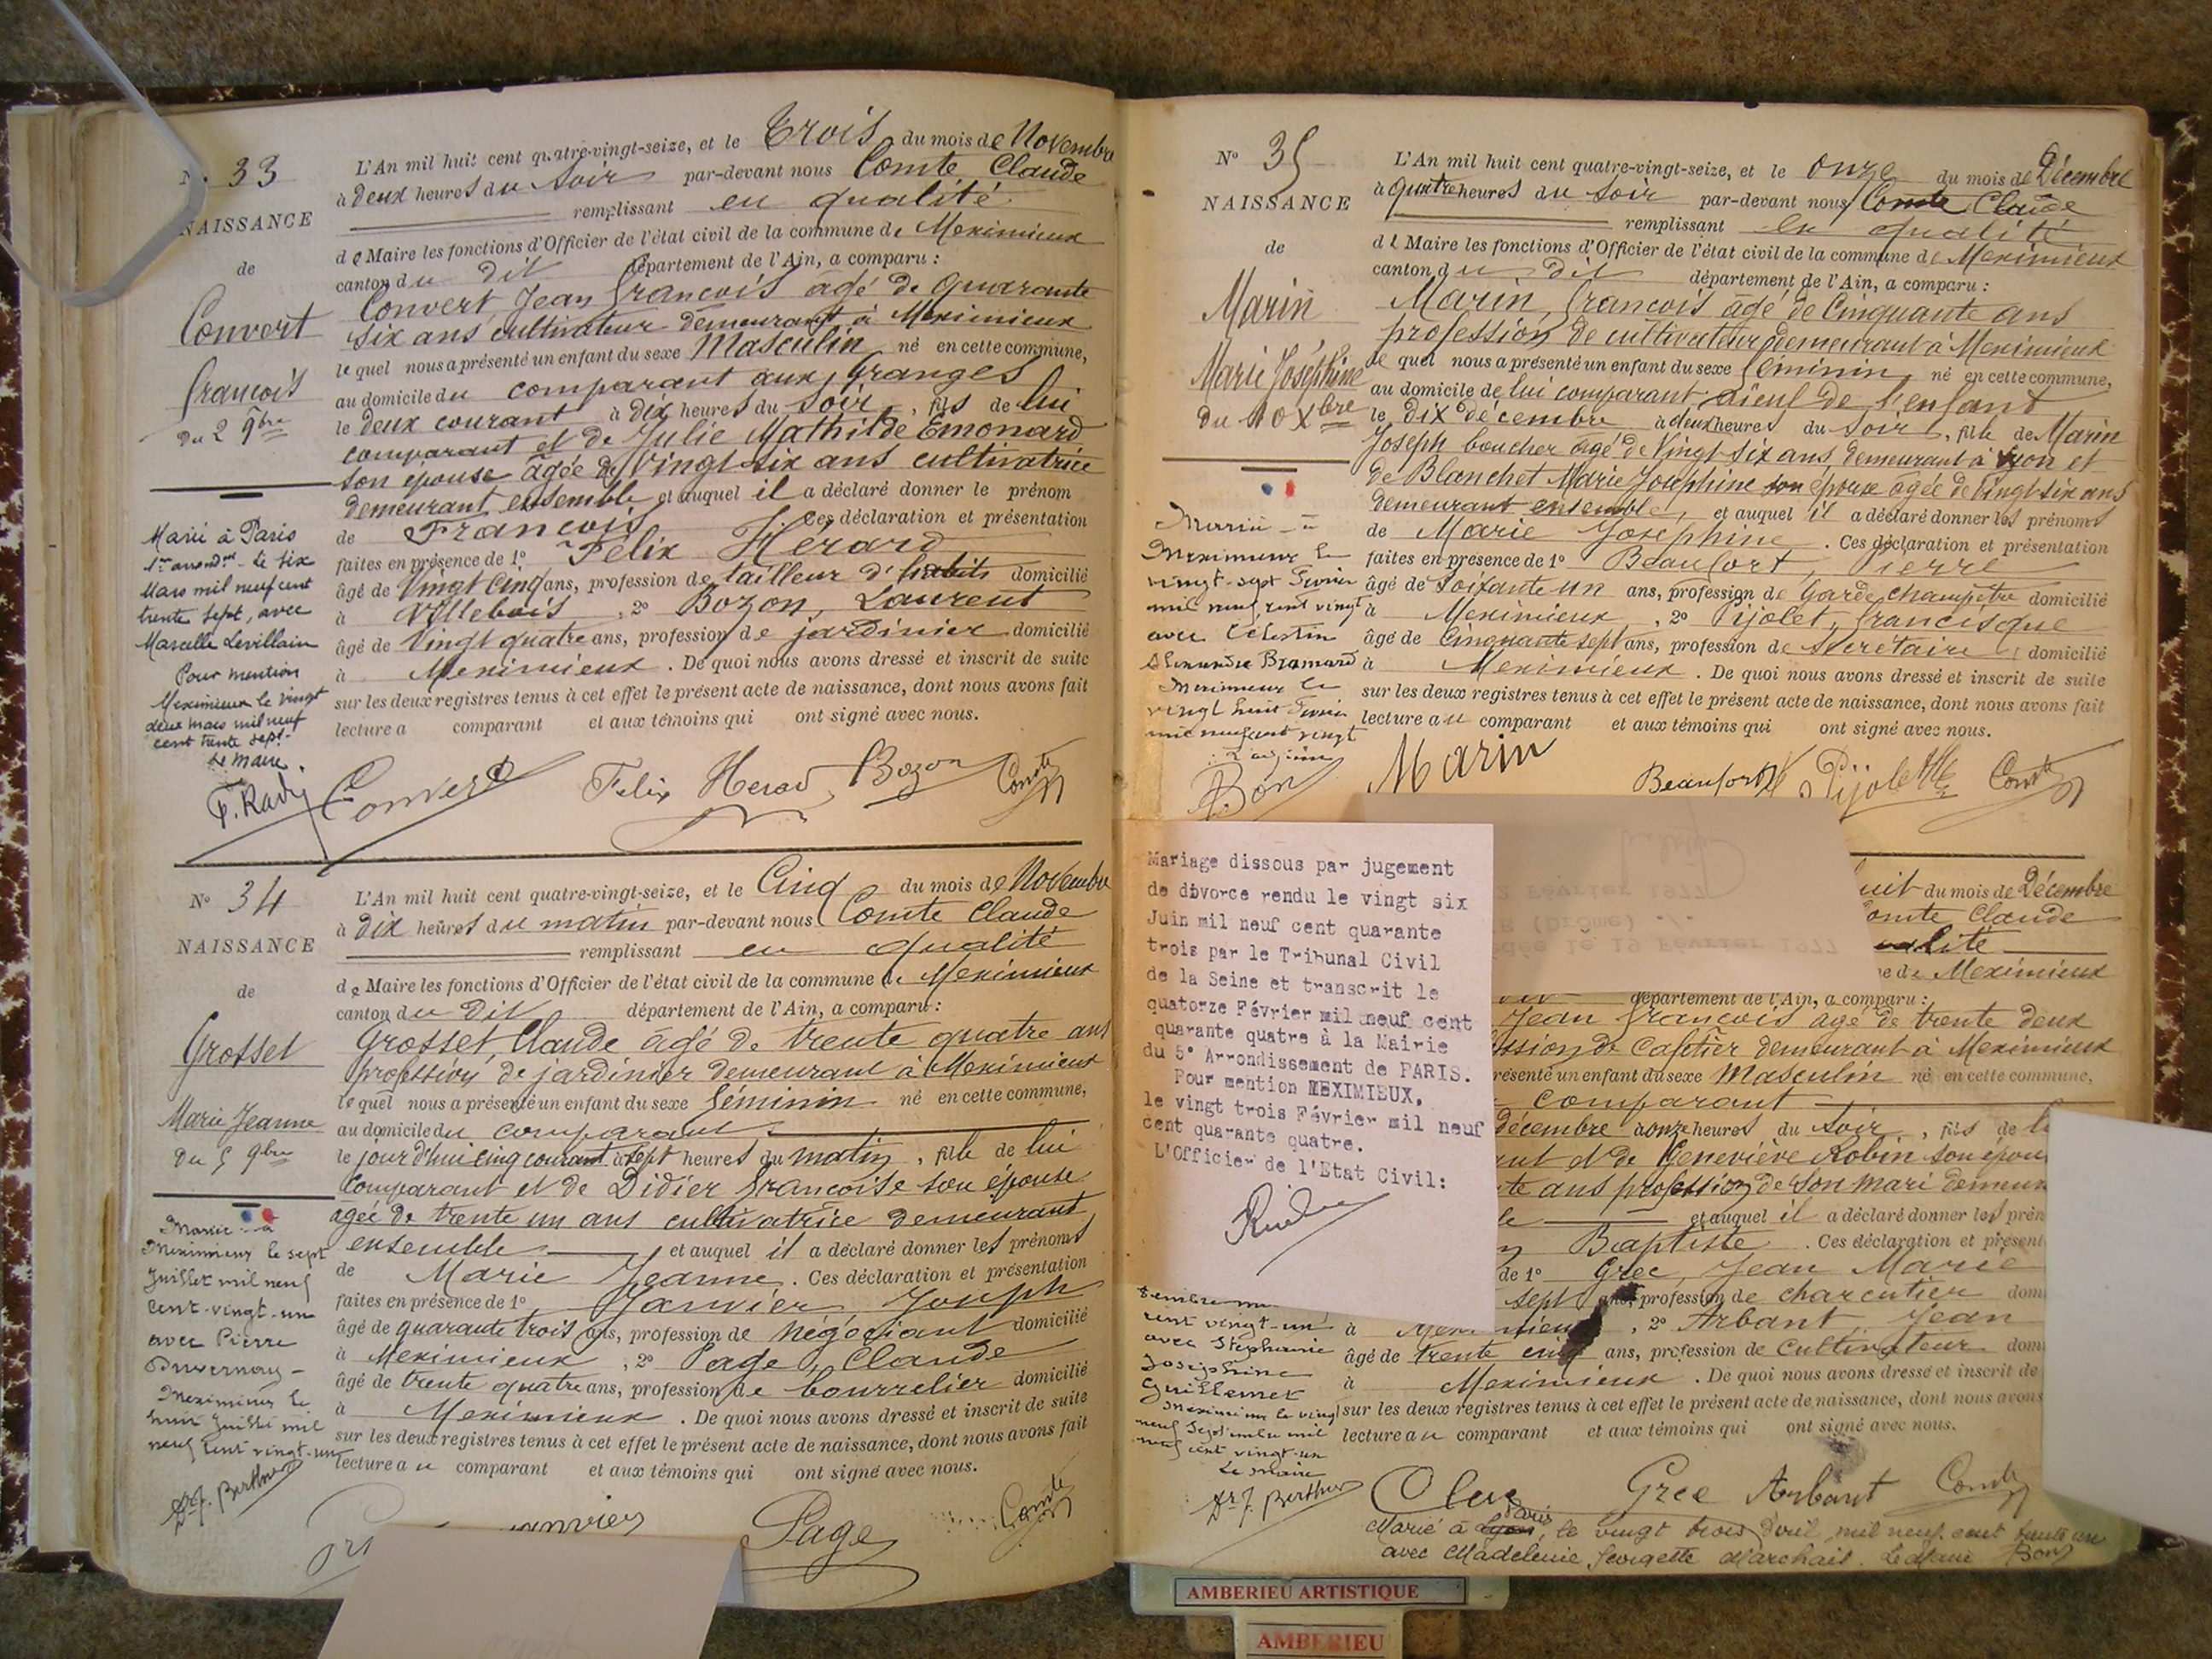 N° 33
NAISSANCE
de
Convert
François
Du 2 9bre
Marié à Paris
1er arrondt le six
Mars mil neuf cent
trente sept, avec
Marcelle Levillain
Pour mention
Meximieux le vingt
deux mars mil neuf
cent trente sept.
Le Maire.
L'An mil huit cent quatre-vingt-seize, et le Trois du mois de Novembre
à deux heures du soir par-devant nous Comte Claude
remplissant en qualité
de Maire les fonctions d'Officier de l'état civil de la commune de Meximieux
canton du dit département de l'Ain, a comparu :
Convert, Jean François âgé de quarante
six ans cultivateur demeurant à Meximieux
lequel nous a présenté un enfant du sexe Masculin né en cette commune,
au domicile du comparant aux Granges
le deux courant à dix heures du soir, fils de lui
comparant et de Julie Mathilde Emonard
son épouse âgée de vingt-six ans cultivatrice
demeurant ensemble et auquel il a déclaré donner le prénom
de François Ces déclaration et présentation
faites en présence de 1° Félix Hérard
âgé de vingt cinq ans, profession de tailleur d'habits domicilié
à Villebois, 2° Bozon, Laurent
âgé de vingt quatre ans, profession de jardinier domicilié
à Meximieux. De quoi nous avons dressé et inscrit de suite
sur les deux registres tenus à cet effet le présent acte de naissance, dont nous avons fait
lecture a comparant et aux témoins qui ont signé avec nous.
Convert Felix Herard Bozon Comte
N° 34
NAISSANCE
de
Grosset
Marie Jeanne
Du 5 9bre
Mariée à
Meximieux le sept
Juillet mil neuf
cent vingt-un
avec Pierre
Duvernay -
Meximieux le
huit Juillet mil
neuf cent vingt-un
Dr J. Berthier
L'An mil huit cent quatre-vingt-seize, et le Cinq du mois de Novembre
à dix heures du matin par-devant nous Comte Claude
remplissant en qualité
de Maire les fonctions d'Officier de l'état civil de la commune de Meximieux
canton du dit département de l'Ain, a comparu :
Grosset Claude âgé de trente quatre ans
profession de jardinier demeurant à Meximieux
lequel nous a présenté un enfant du sexe féminin né en cette commune,
au domicile du comparant
le jourd'hui cinq courant à sept heures du matin, fille de lui
comparant et de Didier Françoise son épouse
agée de trente un ans cultivatrice demeurant
ensemble et auquel il a déclaré donner les prénoms
de Marie Jeanne. Ces déclaration et présentation
faites en présence de 1° Janvier, Joseph
âgé de quarante trois ans, profession de négociant domicilié
à Meximieux, 2° Page, Claude
âgé de trente quatre ans, profession de bourrelier domicilié
à Meximieux. De quoi nous avons dressé et inscrit de suite
sur les deux registres tenus à cet effet le présent acte de naissance, dont nous avons fait
lecture au comparant et aux témoins qui ont signé avec nous.
anvier Page Comte
N° 35
NAISSANCE
de
Marin
Marie Joséphine
Du 10 Xbre
Mariée à
Meximieux le
vingt-sept Février
mil neuf cent vingt
avec Célestin
Alexandre Bramard
Meximieux le
vingt huit Février
mil neuf cent vingt
L'adjoint
Bon
L'An mil huit cent quatre-vingt-seize, et le onze du mois de Décembre
à quatre heures du soir par-devant nous Comte Claude
remplissant en qualité
de Maire les fonctions d'Officier de l'état civil de la commune de Meximieux
canton du dit département de l'Ain, a comparu :
Marin, François âgé de Cinquante ans
profession de cultivateur demeurant à Meximieux
le quel nous a présenté un enfant du sexe féminin né en cette commune,
au domicile de lui comparant aieul de l'enfant
le dix décembre à deux heures du soir, fille de Marin
Joseph boucher âgé de Vingt-six ans demeurant à Lyon et
de Blanchet Marie Joséphine son épouse agée de vingt-six ans
demeurant ensemble, et auquel il a déclaré donner les prénoms
de Marie Joséphine. Ces déclaration et présentation
faites en présence de 1° Beaufort, Pierre
âgé de soixante un ans, profession de Garde champêtre domicilié
à Meximieux, 2° Pijolet, Francisque
âgé de Cinquante sept ans, profession de Secrétaire, domicilié
à Meximieux. De quoi nous avons dressé et inscrit de suite
sur les deux registres tenus à cet effet le présent acte de naissance, dont nous avons fait
lecture au comparant et aux témoins qui ont signé avec nous.
Marin Beaufort Pijolet Comte
Mariage dissous par jugement
de divorce rendu le vingt six
Juin mil neuf cent quarante
trois par le Tribunal Civil
de la Seine et transcrit le
quatorze Février mil neuf cent
quarante quatre à la Mairie
du 5° Arrondissement de PARIS.
Pour mention MEXIMIEUX.
le vingt trois Février mil neuf
cent quarante quatre.
L'Officier de l'Etat Civil:
uit du mois de Décembre
omte Claude
ualité
ne de Meximieux
département de l'Ain, a comparu :
Jean François âgé de trente deux
ession de Cafetier demeurant à Meximieux
résenté un enfant du sexe Masculin né en cette commune,
comparant
décembre à onze heures du soir, fils de l
ant et de Geneviève Robin son épou
te ans profession de son mari demeur
le et auquel il a déclaré donner les prén
Baptiste. Ces déclaration et présent
de 1° Grec, Jean Marie
sept ans, profession de charcutier dom
à Meximieux, 2° Arbant, Jean
âgé de trente cinq ans, profession de Cultivateur dom
à Meximieux. De quoi nous avons dressé et inscrit de
sur les deux registres tenus à cet effet le présent acte de naissance, dont nous avons
lecture au comparant et aux témoins qui ont signé avec nous.
Grec Arbant Comte
tembre m
cent vingt-un
avec Stéphanie
Joséphine
Guillemet
Meximieux le vingt
neuf Septembre mil
neuf cent vingt-un
Le Maire
Dr J. Berthier
Marié à Lyon Paris, le vingt trois avril mil neuf cent trente un
avec Madeleine Georgette Marchais. Le Maire Bon
AMBERIEU ARTISTIQUE
AMBERIEU